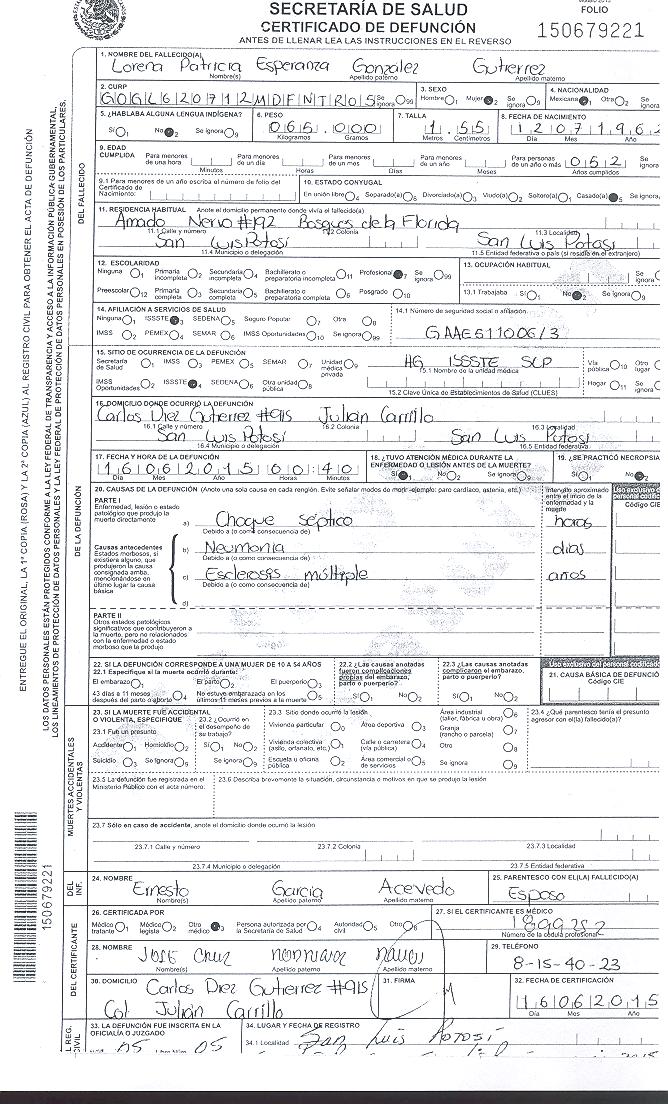 SECRETARÍA DE SALUD
CERTIFICADO DE DEFUNCIÓN
ANTES DE LLENAR LEA LAS INSTRUCCIONES EN EL REVERSO
FOLIO
150679221
1. NOMBRE DEL FALLECIDO(A)
Lorena Patricia Esperanza Gonzalez Gutierrez
Nombre(s) Apellido paterno Apellido materno
2. CURP
3. SEXO Hombre 1 Mujer 2 Se ignora 9
4. NACIONALIDAD Mexicana 1 Otra 2 Se ignora
GOGL620712MDFNTR05 Se ignora 99
5. ¿HABLABA ALGUNA LENGUA INDÍGENA? Sí 1 No 2 Se ignora 9
6. PESO 065.000 Kilogramos Gramos
7. TALLA 1.55 Metros Centímetros
8. FECHA DE NACIMIENTO 1207196 Día Mes Año
9. EDAD CUMPLIDA Para menores de una hora Minutos Para menores de un día Horas Para menores de un mes Días Para menores de un año Meses Para personas de un año o más 052 Años cumplidos
9.1 Para menores de un año escriba el número de folio del Certificado de Nacimiento:
10. ESTADO CONYUGAL En unión libre 4 Separado(a) 6 Divorciado(a) 3 Viudo(a) 2 Soltero(a) 1 Casado(a) 5 Se ignora
11. RESIDENCIA HABITUAL Anote el domicilio permanente donde vivía el fallecido(a)
Amado Nervo #192 Bosques de la Florida
11.1 Calle y número 11.2 Colonia 11.3 Localidad
San Luis Potosí San Luis Potosí
11.4 Municipio o delegación 11.5 Entidad federativa o país (si residía en el extranjero)
12. ESCOLARIDAD
Ninguna 1 Primaria incompleta 2 Secundaria incompleta 4 Bachillerato o preparatoria incompleta 11 Profesional 7 Se ignora 99
Preescolar 12 Primaria completa 3 Secundaria completa 5 Bachillerato o preparatoria completa 6 Posgrado 10
13. OCUPACIÓN HABITUAL
13.1 Trabajaba Sí 1 No 2 Se ignora 9
14. AFILIACIÓN A SERVICIOS DE SALUD
Ninguna 1 ISSSTE 3 SEDENA 5 Seguro Popular 7 Otra 8
IMSS 2 PEMEX 4 SEMAR 6 IMSS Oportunidades 10 Se ignora 99
14.1 Número de seguridad social o afiliación
GAAE511006/3
15. SITIO DE OCURRENCIA DE LA DEFUNCIÓN
Secretaría de Salud 1 IMSS 3 PEMEX 5 SEMAR 7 Unidad médica privada 9
IMSS Oportunidades 2 ISSSTE 4 SEDENA 6 Otra unidad pública 8
HG ISSSTE SLP
15.1 Nombre de la unidad médica
15.2 Clave Única de Establecimientos de Salud (CLUES)
Vía pública 10 Otro lugar
Hogar 11 Se ignora
16. DOMICILIO DONDE OCURRIÓ LA DEFUNCIÓN
Carlos Diez Gutierrez #915 Julian Carrillo
16.1 Calle y número 16.2 Colonia 16.3 Localidad
San Luis Potosí San Luis Potosí
16.4 Municipio o delegación 16.5 Entidad federativa
17. FECHA Y HORA DE LA DEFUNCIÓN
16062015 00:40
Día Mes Año Horas Minutos
18. ¿TUVO ATENCIÓN MÉDICA DURANTE LA ENFERMEDAD O LESIÓN ANTES DE LA MUERTE?
Sí 1 No 2 Se ignora 9
19. ¿SE PRACTICÓ NECROPSIA
Sí 1 No 2
20. CAUSAS DE LA DEFUNCIÓN (Anote una sola causa en cada renglón. Evite señalar modos de morir -ejemplo: paro cardíaco, astenia, etc.)
PARTE I
Enfermedad, lesión o estado patológico que produjo la muerte directamente
Intervalo aproximado entre el inicio de la enfermedad y la muerte
Código CIE
a) Choque Séptico horas
Debido a (o como consecuencia de)
Causas antecedentes
Estados morbosos, si existiera alguno, que produjeron la causa consignada arriba, mencionándose en último lugar la causa básica
b) Neumonía días
Debido a (o como consecuencia de)
c) Esclerosis múltiple años
Debido a (o como consecuencia de)
d)
PARTE II
Otros estados patológicos significativos que contribuyeron a la muerte, pero no relacionados con la enfermedad o estado morboso que la produjo
22. SI LA DEFUNCIÓN CORRESPONDE A UNA MUJER DE 10 A 54 AÑOS
22.1 Especifique si la muerte ocurrió durante:
El embarazo 1 El parto 2 El puerperio 3
43 días a 11 meses después del parto o aborto 4 No estuvo embarazada en los últimos 11 meses previos a la muerte 5
22.2 ¿Las causas anotadas fueron complicaciones propias del embarazo, parto o puerperio?
Sí 1 No 2
22.3 ¿Las causas anotadas complicaron el embarazo, parto o puerperio?
Sí 1 No 2
Uso exclusivo del personal codificador
21. CAUSA BÁSICA DE DEFUNCIÓ
Código CIE
23. SI LA MUERTE FUE ACCIDENTAL O VIOLENTA, ESPECIFIQUE
23.1 Fue un presunto
Accidente 1 Homicidio 2
Suicidio 3 Se ignora 9
23.2 ¿Ocurrió en el desempeño de su trabajo?
Sí 1 No 2
Se ignora 9
23.3 Sitio donde ocurrió la lesión
Vivienda particular 0 Área deportiva 3 Área industrial (taller, fábrica u obra) 6
Vivienda colectiva (asilo, orfanato, etc.) 1 Calle o carretera (vía pública) 4 Granja (rancho o parcela) 7
Escuela u oficina pública 2 Área comercial o de servicios 5 Otro 8
Se ignora 9
23.4 ¿Qué parentesco tenía el presunto agresor con el(la) fallecido(a)?
23.5 La defunción fue registrada en el Ministerio Público con el acta número:
23.6 Describa brevemente la situación, circunstancia o motivos en que se produjo la lesión
23.7 Sólo en caso de accidente, anote el domicilio donde ocurrió la lesión
23.7.1 Calle y número 23.7.2 Colonia 23.7.3 Localidad
23.7.4 Municipio o delegación 23.7.5 Entidad federativa
24. NOMBRE
Ernesto Garcia Acevedo
Nombre(s) Apellido paterno Apellido materno
25. PARENTESCO CON EL(LA) FALLECIDO(A)
Esposo
26. CERTIFICADA POR
Médico tratante 1 Médico legista 2 Otro médico 3 Persona autorizada por la Secretaría de Salud 4 Autoridad civil 5 Otro 6
27. SI EL CERTIFICANTE ES MÉDICO
Número de la cédula profesional
28. NOMBRE
Jose Cruz
Nombre(s) Apellido paterno Apellido materno
29. TELÉFONO
8-15-40-23
30. DOMICILIO
Carlos Diez Gutierrez #915
Col Julián Carrillo
31. FIRMA
32. FECHA DE CERTIFICACIÓN
16062015
Día Mes Año
33. LA DEFUNCIÓN FUE INSCRITA EN LA OFICIALÍA O JUZGADO
05 05
34. LUGAR Y FECHA DE REGISTRO
34.1 Localidad San Luis Potosí
DEL FALLECIDO
DE LA DEFUNCIÓN
MUERTES ACCIDENTALES Y VIOLENTAS
DEL INF.
DEL CERTIFICANTE
L REG. CIVIL
ENTREGUE EL ORIGINAL, LA 1ª COPIA (ROSA) Y LA 2ª COPIA (AZUL) AL REGISTRO CIVIL PARA OBTENER EL ACTA DE DEFUNCIÓN
LOS DATOS PERSONALES ESTÁN PROTEGIDOS CONFORME A LA LEY FEDERAL DE TRANSPARENCIA Y ACCESO A LA INFORMACIÓN PÚBLICA GUBERNAMENTAL,
LOS LINEAMIENTOS DE PROTECCIÓN DE DATOS PERSONALES Y LA LEY FEDERAL DE PROTECCIÓN DE DATOS PERSONALES EN POSESIÓN DE LOS PARTICULARES.
150679221